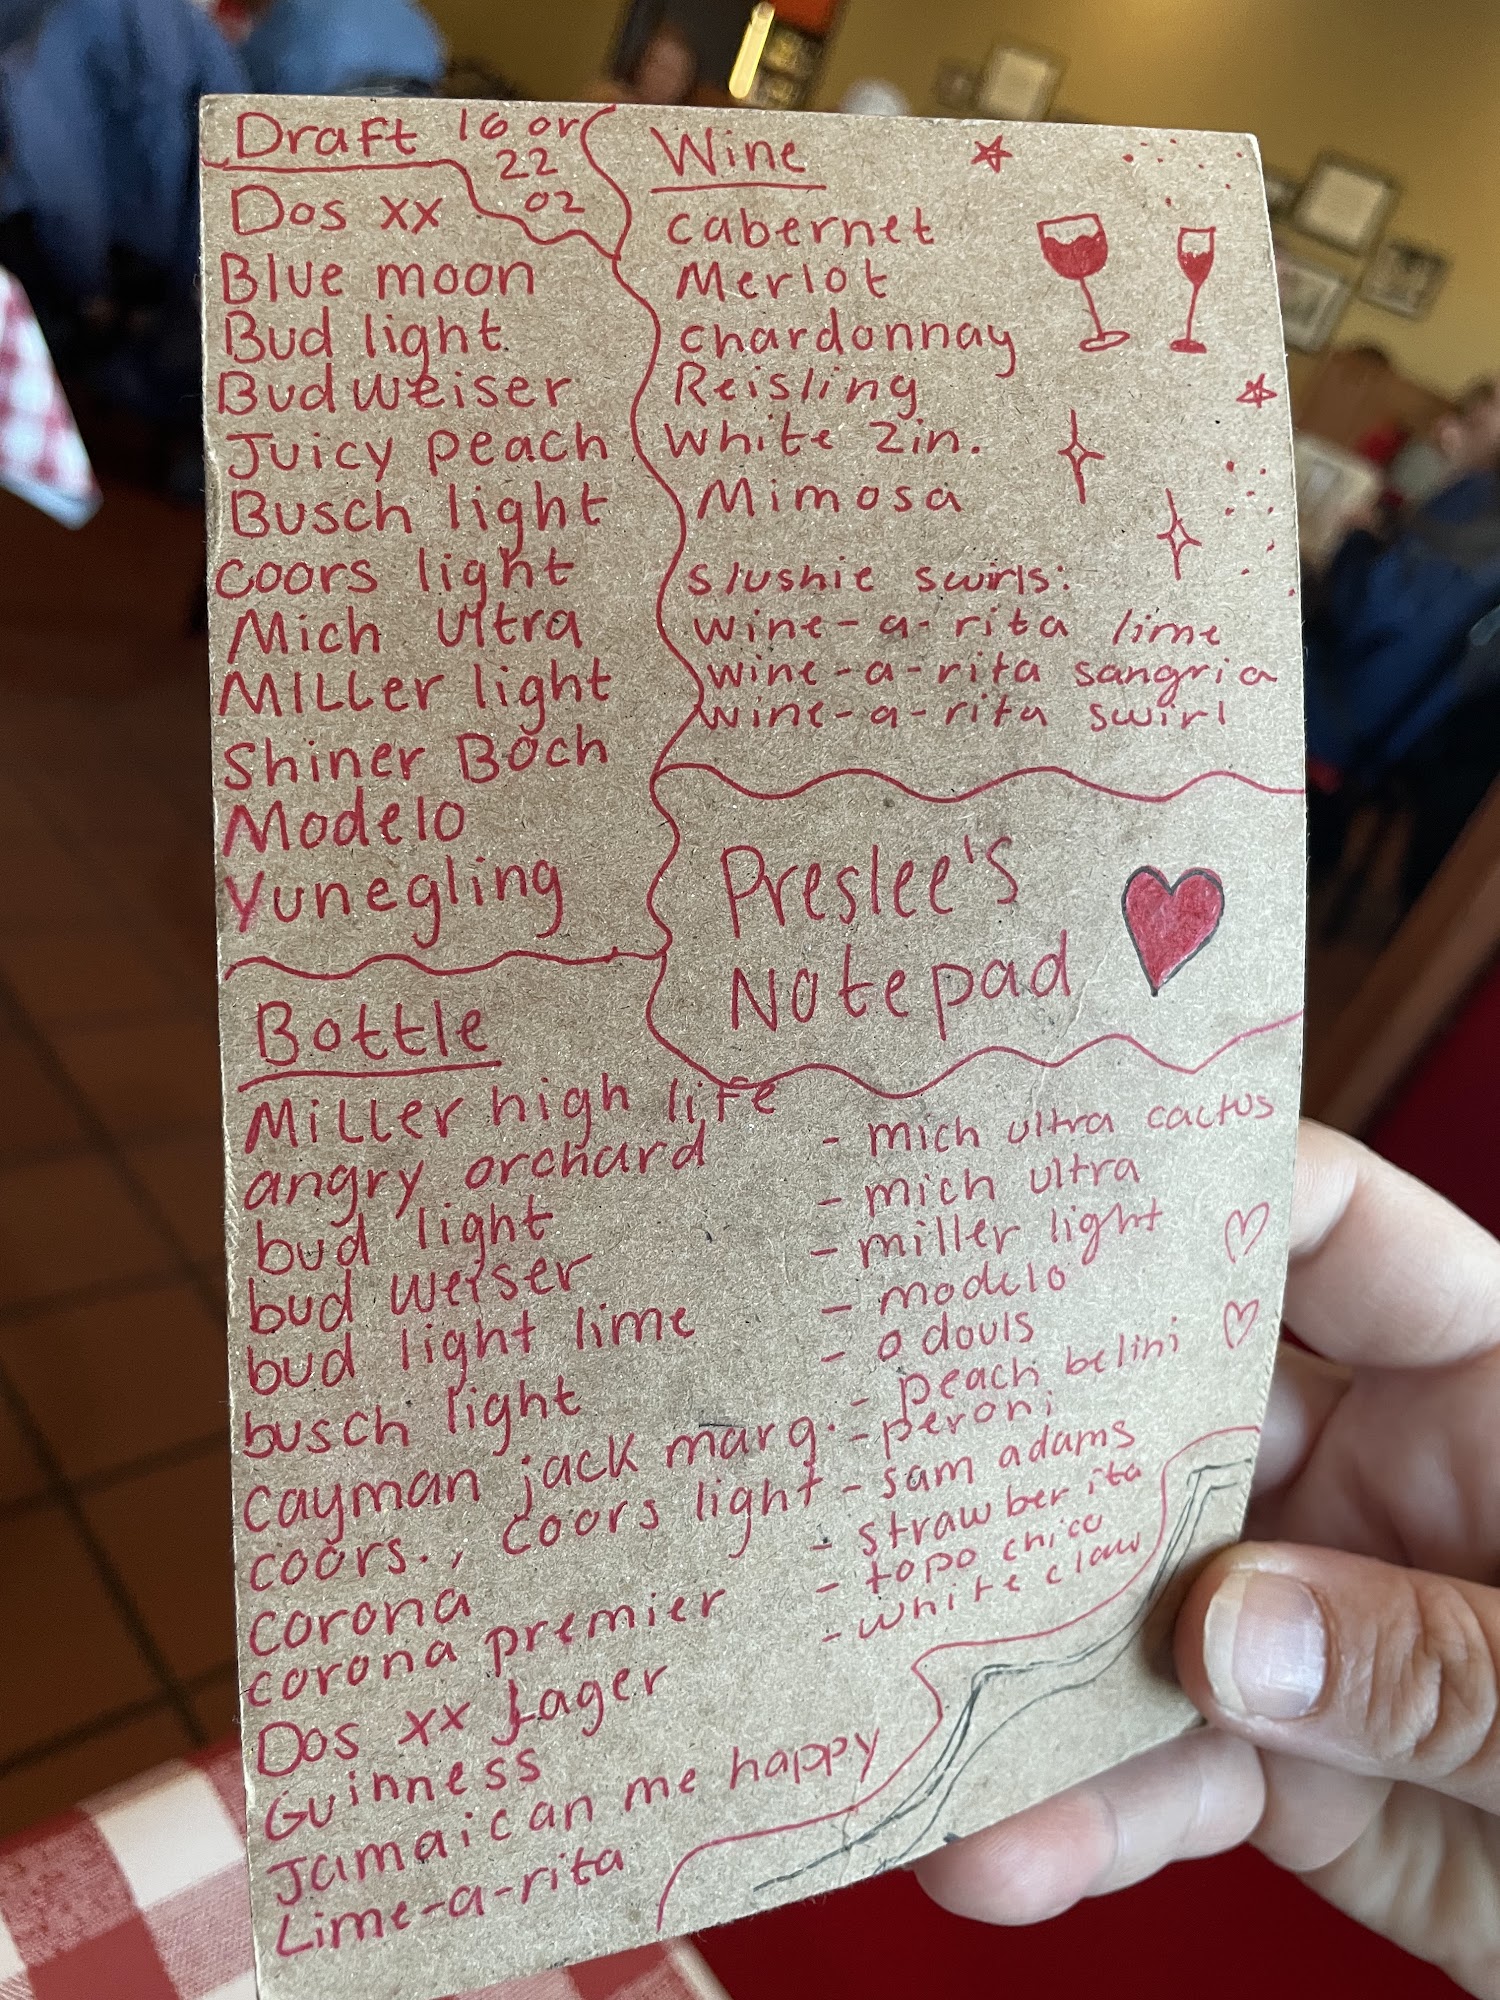 Draft 16 or
22
oz
Dos xx
Blue moon
Bud light
Budweiser
Juicy peach
Busch light
coors light
Mich Ultra
MILLer light
Shiner Boch
Modelo
Yunegling
Wine
cabernet
Merlot
chardonnay
Reisling
white zin.
Mimosa
slushie swirls:
wine-a-rita lime
wine-a-rita sangria
wine-a-rita swirl
Preslee's
Notepad
Bottle
Miller high life
angry orchard
bud light
bud weiser
bud light lime
busch light
cayman jack marg.
coors., coors light
corona
corona premier
Dos xx Lager
Guinness
Jamaican me happy
Lime-a-rita
- mich ultra cactus
- mich ultra
- miller light
- modelo
- o douls
- peach belini
- peroni
- sam adams
- straw ber ita
- topo chico
- white claw